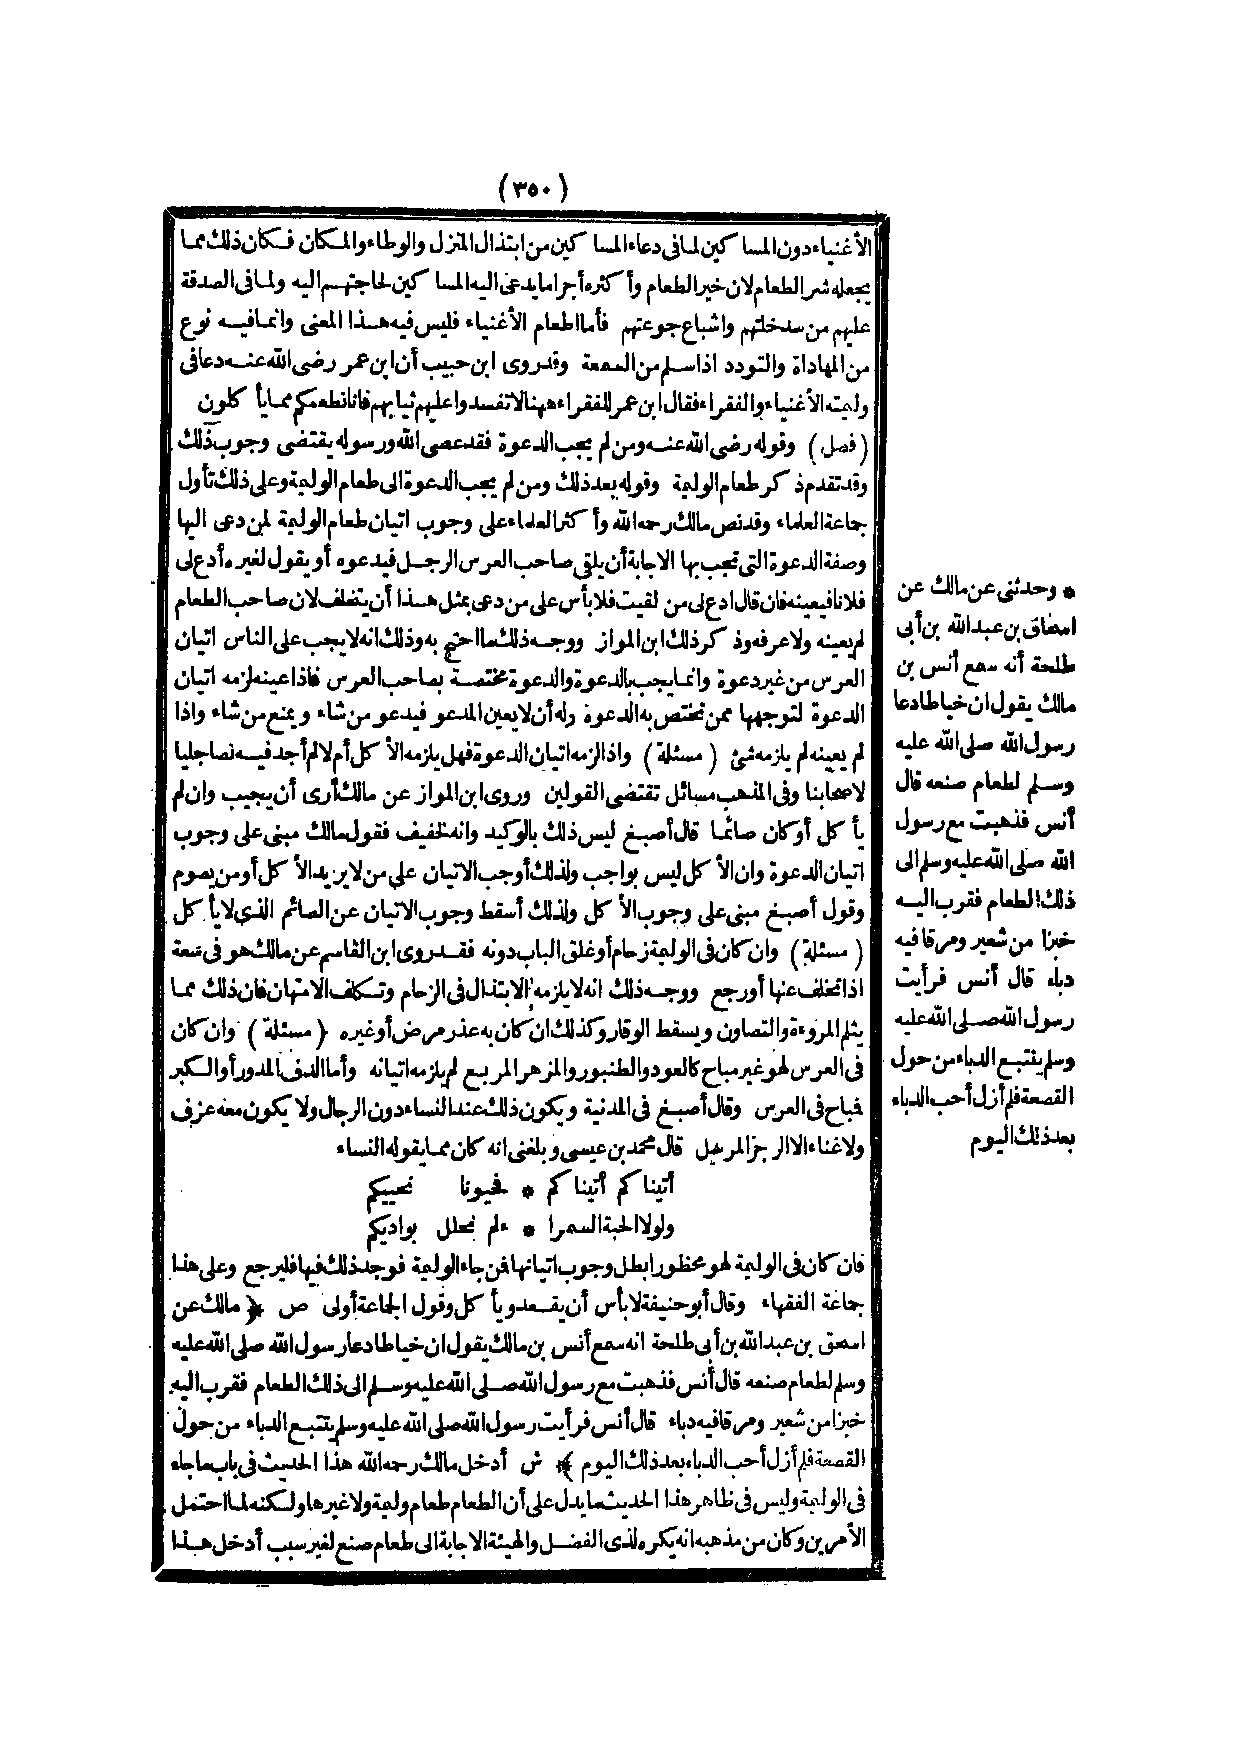 (٣٥٠)
الأغنياء دون المساكين لما في دعاء المساكين من ابتذال المنزل والوطاء والمكان فكان ذلك مما
يجعله شر الطعام لان خير الطعام وأكثره أجرا ما يدعى اليه المساكين لحاجتهم اليه ولما في الصدقة
عليهم من سد خلتهم واشباع جوعتهم فأما اطعام الأغنياء فليس فيه هذا المعنى وانما فيه نوع
من المهاداة والتودد اذا سلم من السمعة وقد روى ابن حبيب أن ابن عمر رضى الله عنه دعا في
وليمته الأغنياء والفقراء فقال ابن عمر للفقراء ههنا لا تفسدوا عليهم ثيابهم فانا نطعمكم مما يأكلون
(فصل) وقوله رضى الله عنه ومن لم يجب الدعوة فقد عصى الله ورسوله يقتضى وجوب ذلك
وقد تقدم ذكر طعام الوليمة وقوله بعد ذلك ومن لم يجب الدعوة الى طعام الوليمة وعلى ذلك تأول
جماعة العلماء وقد نص مالك رحمه الله وأكثر العلماء على وجوب اتيان طعام الوليمة لمن دعى اليها
وصفة الدعوة التي تجب بها الاجابة أن يلقى صاحب العرس الرجل فيدعوه أو يقول لغيره أدع لى
فلانا فيعينه فان قال ادع لى من لقيت فلا بأس على من دعى بمثل هذا أن يتخلف لان صاحب الطعام
لم يعينه ولا عرفه وذكر ذلك ابن المواز ووجه ذلك ما احتج به وذلك انه لا يجب على الناس اتيان
العرس من غير دعوة وانما يجب بالدعوة والدعوة مختصة بصاحب العرس فاذا عينه لزمه اتيان
الدعوة لتوجهها ممن تختص به الدعوة وله أن لا يعين المدعو فيدعو من شاء ويمنع من شاء واذا
لم يعينه لم يلزمه شئ (مسئلة) واذا لزمه اتيان الدعوة فهل يلزمه الأكل أم لا لم أجد فيه نصا جليا
لاصحابنا وفى المذهب مسائل تقتضى القولين وروى ابن المواز عن مالك أرى أن يجيب وان لم
يأكل أو كان صائما قال أصبغ ليس ذلك بالوكيد وانه لخفيف فقول مالك مبنى على وجوب
اتيان الدعوة وان الأكل ليس بواجب ولذلك أوجب الاتيان على من لا يريد الأكل أو من يصوم
وقول أصبغ مبنى على وجوب الأكل ولذلك أسقط وجوب الاتيان عن الصائم الذى لا يأكل
(مسئلة) وان كان في الوليمة زحام أو غلق الباب دونه فقد روى ابن القاسم عن مالك هو في سعة
اذا تخلف عنها أو رجع ووجه ذلك انه لا يلزمه الابتذال في الزحام وتكلف الامتهان فان ذلك مما
يثلم المروءة والتصاون ويسقط الوقار وكذلك ان كان به عذر مرض أو غيره (مسئلة) وان كان
في العرس لهو غير مباح كالعود والطنبور والمزهر المربع لم يلزمه اتيانه وأما الدف المدور أو الكبر
فباح في العرس وقال أصبغ في المدنية ويكون ذلك عند النساء دون الرجال ولا يكون معه عزف
ولا غناء الا الرجز المرسل قال محمد بن عيسى وبلغنى انه كان مما يقوله النساء
أتيناكم أتيناكم * فحيونا نحييكم
ولولا الحبة السمرا * ءلم نحلل بواديكم
فان كان في الوليمة لهو محظور ابطل وجوب اتيانها فمن جاء الوليمة فوجد ذلك فيها فليرجع وعلى هذا
جماعة الفقهاء وقال أبو حنيفة لا بأس أن يقعد ويأكل وقول الجماعة أولى ص ﴿ مالك عن
اسحق بن عبد الله بن أبى طلحة انه سمع أنس بن مالك يقول ان خياطا دعا رسول الله صلى الله عليه
وسلم لطعام صنعه قال أنس فذهبت مع رسول الله صلى الله عليه وسلم الى ذلك الطعام فقرب اليه
خبزا من شعير ومرقا فيه دباء قال أنس فرأيت رسول الله صلى الله عليه وسلم يتتبع الدباء من حول
القصعة فلم أزل أحب الدباء بعد ذلك اليوم ﴾ ش أدخل مالك رحمه الله هذا الحديث في باب ما جاء
في الوليمة وليس في ظاهر هذا الحديث ما يدل على أن الطعام طعام وليمة ولا غيرها ولكنه لما احتمل
الأمرين وكان من مذهبه انه يكره لذى الفضل والهيئة الاجابة الى طعام صنع لغير سبب أدخل هذا
* وحدثنى عن مالك عن
اسحاق بن عبد الله بن أبى
طلحة أنه سمع أنس بن
مالك يقول ان خياطا دعا
رسول الله صلى الله عليه
وسلم لطعام صنعه قال
أنس فذهبت مع رسول
الله صلى الله عليه وسلم الى
ذلك الطعام فقرب اليه
خبزا من شعير ومرقا فيه
دباء قال أنس فرأيت
رسول الله صلى الله عليه
وسلم يتتبع الدباء من حول
القصعة فلم أزل أحب الدباء
بعد ذلك اليوم